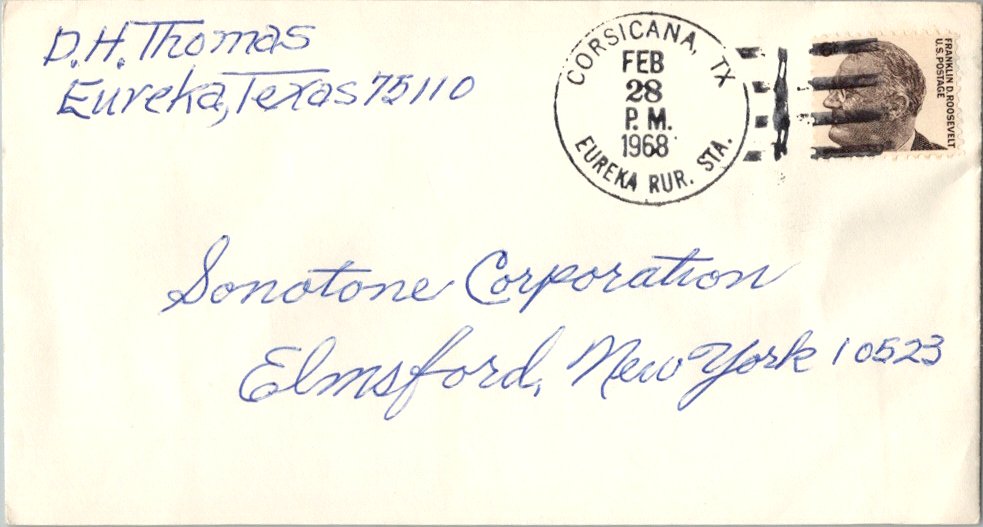 D.H. Thomas
Eureka, Texas 75110
CORSICANA, TX
FEB
28
P.M.
1968
EUREKA RUR. STA.
6¢
FRANKLIN D. ROOSEVELT
U.S. POSTAGE
Sonotone Corporation
Elmsford, New York 10523